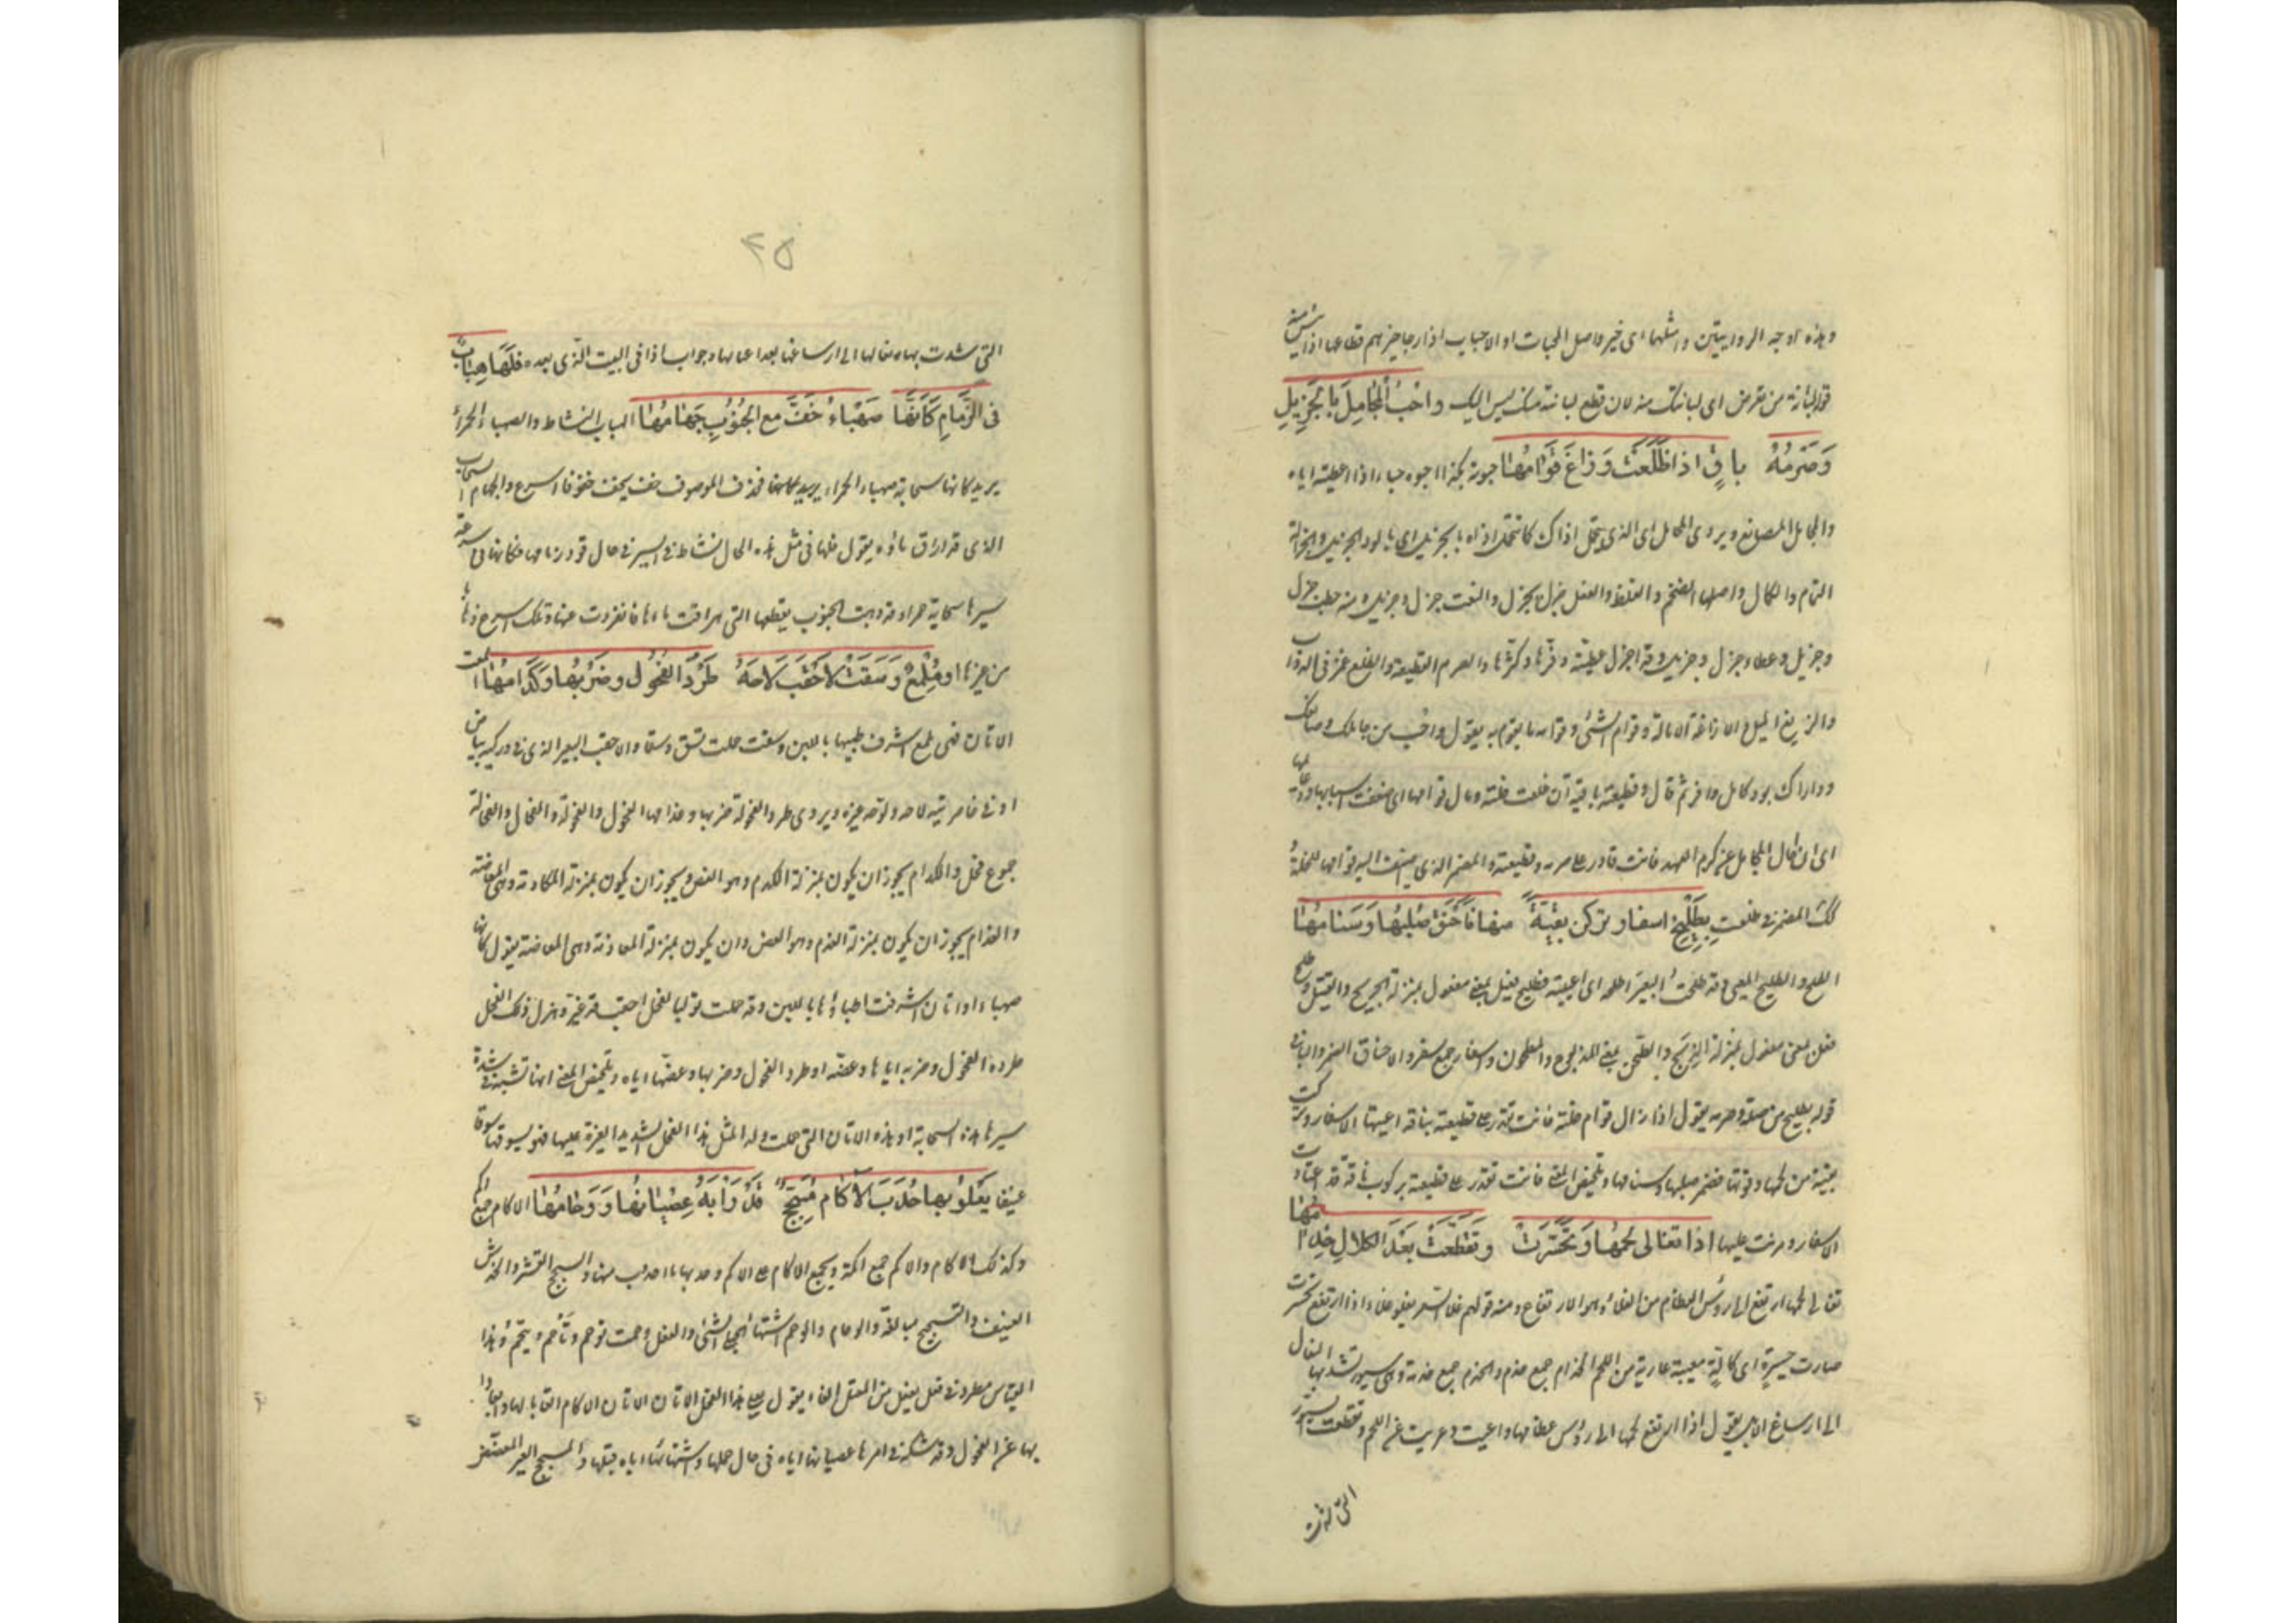 وهذه اوجه الروايتين وامثلها اى خير واصل المحبات او الاحباب اذا رجا خيرهم قطاعها اذا يئس منه
قوله لبانة من تعرض اى لبانتك منه لان قطع لبانته منك ليس اليك واحْبُ المُجَامِلَ بِالجَزِيلِ
وَصَرْمُهُ باقٍ اذا ظَلَعَتْ وَزَاغَ قَوَامُهَا حبوته بكذا احبوه حباء اذا اعطيته اياه
والمجامل المصانع ويروى المحامل اى الذى يتحمل اذاك كما تتحمل اذاه بالجزيل اى بالود الجزيل والجزالة
التمام والكمال واصلها الضخم والغلظ والفعل جزل يجزل والنعت جزل وجزيل ومنه حطب جزل
وجزيل وعطاء جزل وجزيل وقد اجزل عطيته وفرها وكثرها والصرم القطيعة والظلع غمز فى الدواب
والزيغ الميل والازاغة الامالة وقوام الشئ وقوامه ما يقوم به يقول واحب من جاملك وصانعك
وداراك بود كامل وافر ثم قال وقطيعته باقية ان ظلعت خلته ومال قوامها اى ضعفت اسبابها ودعائمها
اى ان حال المجامل عن كرم العهد فانت قادر على صرمه وقطيعته والمضمر الذى يضاف اليه قوامها للخلة
وكذلك المضمر فى ظلعت بِطَلِيحِ اسفارٍ تركن بقيَّةً منها فَأَحْنَقَ صُلْبُهَا وَسَنَامُهَا
الطلح والطليح المعيى وقد طلحت البعير اطلحه اى اعييته فطليح فعيل بمعنى مفعول بمنزلة الجريح والقتيل وطلح
فعل بمعنى مفعول بمنزلة الذبح والطحن بمعنى المذبوح والمطحون واسفار جمع سفر والاحناق الضمر والباء فى
قوله بطليح من صلة وصرمه يقول اذا زال قوام خلته فانت تقدر على قطيعته بناقة اعيتها الاسفار وتركت
بقية من لحمها وقوتها فضمر صلبها وسنامها وتلخيص المعنى فانت تقدر على قطيعته بركوب ناقة قد اعتادت
الاسفار ومرنت عليها اذا تَغَالى لَحْمُهَا وَتَحَسَّرَتْ وتَقَطَّعَتْ بَعْدَ الكَلالِ خِدَامُهَا
تغالى لحمها ارتفع الى رؤس العظام من الغلاء وهو الارتفاع ومنه قولهم غلا السعر يغلو غلاء اذا ارتفع تحسرت
صارت حسيرة اى كالة معيية عارية من اللحم الخدام جمع خدم والخدم جمع خدمة وهى سيور تشد بها النعال
الى ارساغ الابل يقول اذا ارتفع لحمها الى رؤس عظامها واعيت وعريت عن اللحم وتقطعت السيور
التى شدت
٢٥
التى شدت بها نعالها الى ارساغها بعد اعيائها وجواب اذا فى البيت الذى بعده فَلَهَا هِبَابٌ
فى الزِّمَامِ كَأَنَّهَا صَهْبَاءُ خَفَّ مع الجَنُوبِ جَهَامُهَا الهباب النشاط والصهباء الحمراء
يريد كانها سحابة صهباء الحمراء يريد كانها فحذف الموصوف خف يخف خفوفا اسرع والجهام السحاب
الذى قد اراق ماؤه يقول فلها فى مثل هذه الحال نشاط فى السير فى حال قود زمامها فكانها فى سرعة
سيرها سحابة حمراء قد ذهبت الجنوب بقطعها التى هراقت ماءها فانفردت عنها وتلك اسرع ذهابا
من غيرها او مُلْمِعٌ وَسَقَتْ لِأَحْقَبَ لَاحَهُ طَرْدُ الفُحُولِ وضَرْبُهَا وَكِدَامُهَا المعت
الاتان فهى ملمع اشرف طبيها باللبن وسقت حملت تسق وسقا والاحقب البعير الذى فى وركيه بياض
او فى خاصرتيه لاحه ولوحه غيره ويروى طرد الفحولة ضربها وعذامها الفحول والفحولة والفحال والفحالة
جموع فحل والكدام يجوز ان يكون بمنزلة الكدم وهو العض ويجوز ان يكون بمنزلة المكادمة وهى المعاضة
والعذام يجوز ان يكون بمنزلة العذم وهو العض وان يكون بمنزلة المعاذمة وهى المعاضة يقول كانها
صهباء او اتان اشرفت اطباؤها باللبن وقد حملت تولبا لفحل احقب قد غير وهزل ذلك الفحل
طرده الفحول وضربه اياها وعضه او طرد الفحول وضربها وعضها اياه وتلخيص المعنى انها تشبه فى شدة
سيرها هذه السحابة او هذه الاتان التى حملت ولدا لمثل هذا الفحل الشديد الغيرة عليها فهو يسوقها سوقا
عنيفا يَعْلُو بها حُدَبَ الْآكَامِ مُسَحَّجٌ قَدْ رَابَهُ عِصْيَانُهَا وَوِحَامُهَا الاكام جمع اكم
وكذلك الاكام والاكم جمع اكمة ويجمع الاكام على الاكم وحدبها ما احدودب منها والسحج القشر والخدش
العنيف والتسحيج مبالغة والوحام والوحم اشتهاء الحبلى الشئ والفعل وحمت توحم وتاحم وتيحم وهذا
القياس مطرد فى فعل يفعل من المعتل الفاء يقول يعلى هذا الفحل الاتان الاكام اتعابا لها وابعادا
بها عن الفحول وقد شككه فى امرها عصيانها اياه فى حال حملها واشتهائها اياه قبلها والمسحج العير المعضض